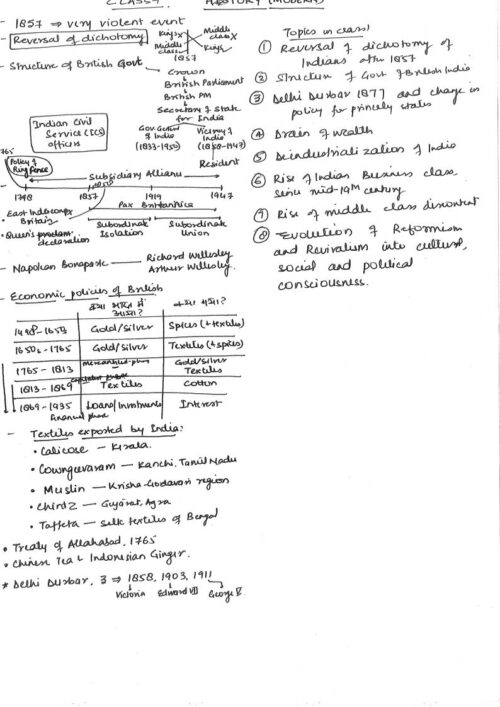 CLASS 7
HISTORY (MODERN)
- 1857 ⇒ very violent event
- Reversal of dichotomy
Kings X
Middle class
Middle class X
Kings
1857
- Structure of British Govt.
Crown
British Parliament
British PM
Secretary of State for India
Gov. General of India
(1833-1950)
Viceroy of India
(1858-1947)
Resident
Indian Civil Service (ICS) officers
1765
Policy of Ring Fence
Subsidiary Alliance
1798
1857
1858
1919
1947
Pax Britannica
- East India comp
Britain
Subordinate Isolation
Subordinate Union
• Queen's
declaration
- Napolean Bonaparte — Richard Wellesley
Arthur Wellesley.
- Economic policies of British
क्या भारत में आया?
क्या गया?
1498-1650
Gold/Silver
Spices (+textiles)
1650s-1765
Gold/Silver
Textiles (+spices)
1765-1813
mercantilist phase
Gold/Silver
Textiles
1813-1869
Textiles
Cotton
1869-1935
Loans/Investments
Interest
financial phase
- Textiles exported by India:
• Calicose — Kerala.
• — Kanchi, Tamil Nadu
• Muslin — Krisha-Godavari region
• Chintz — Gujarat, Agra
• Taffeta — Silk textiles of Bengal
• Treaty of Allahabad, 1765
• Chinese Tea & Indonesian Ginger.
* Delhi Durbar, 3 ⇒ 1858, 1903, 1911
Victoria
Edward VII
George V
Topics in class!
① Reversal of dichotomy of
Indians after 1857
② Structure of Govt of British India
③ Delhi Durbar 1877 and change in
policy for princely states
④ Drain of wealth
⑤ Deindustrialization of India
⑥ Rise of Indian Business class
since mid-19th century
⑦ Rise of middle class discontent
⑧ Evolution of Reformism
and Revivalism into cultural,
social and political
consciousness.